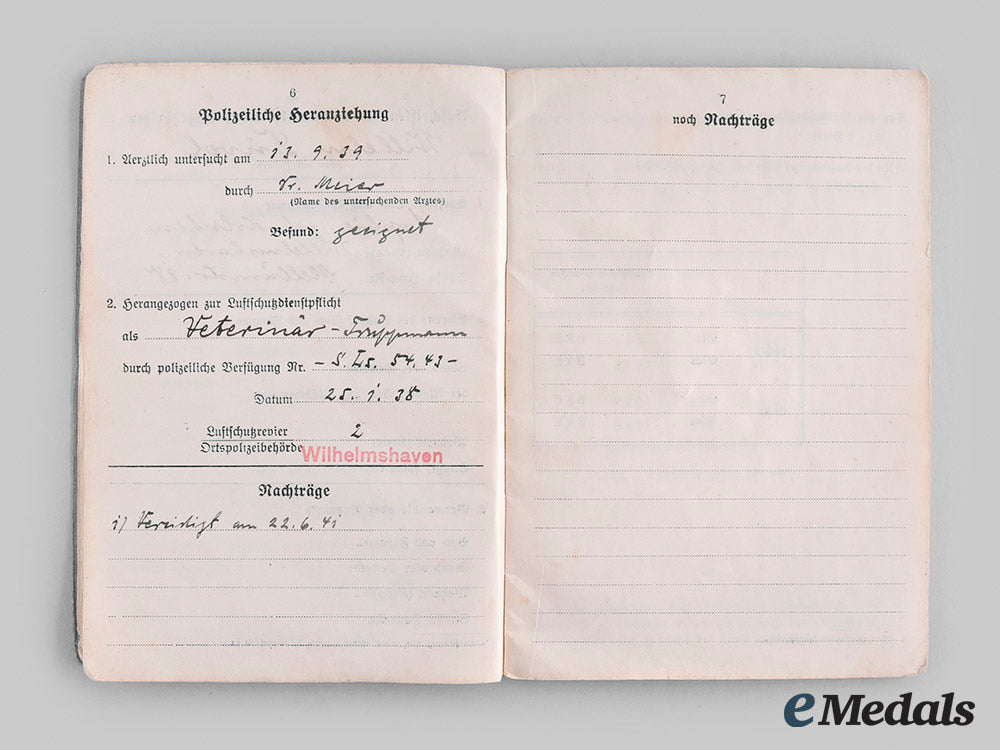 6
Polizeiliche Heranziehung
1. Aerztlich untersucht am 13. 9. 39
durch Dr. Meier
(Name des untersuchenden Arztes)
Befund: geeignet
2. Herangezogen zur Luftschutzdienstpflicht
als Veterinär - Truppmann
durch polizeiliche Verfügung Nr. - S. Ls. 54.43 -
Datum 25. 1. 38
Luftschutzrevier 2
Ortspolizeibehörde Wilhelmshaven
Nachträge
1) Vereidigt am 22.6.41
7
noch Nachträge
eMedals